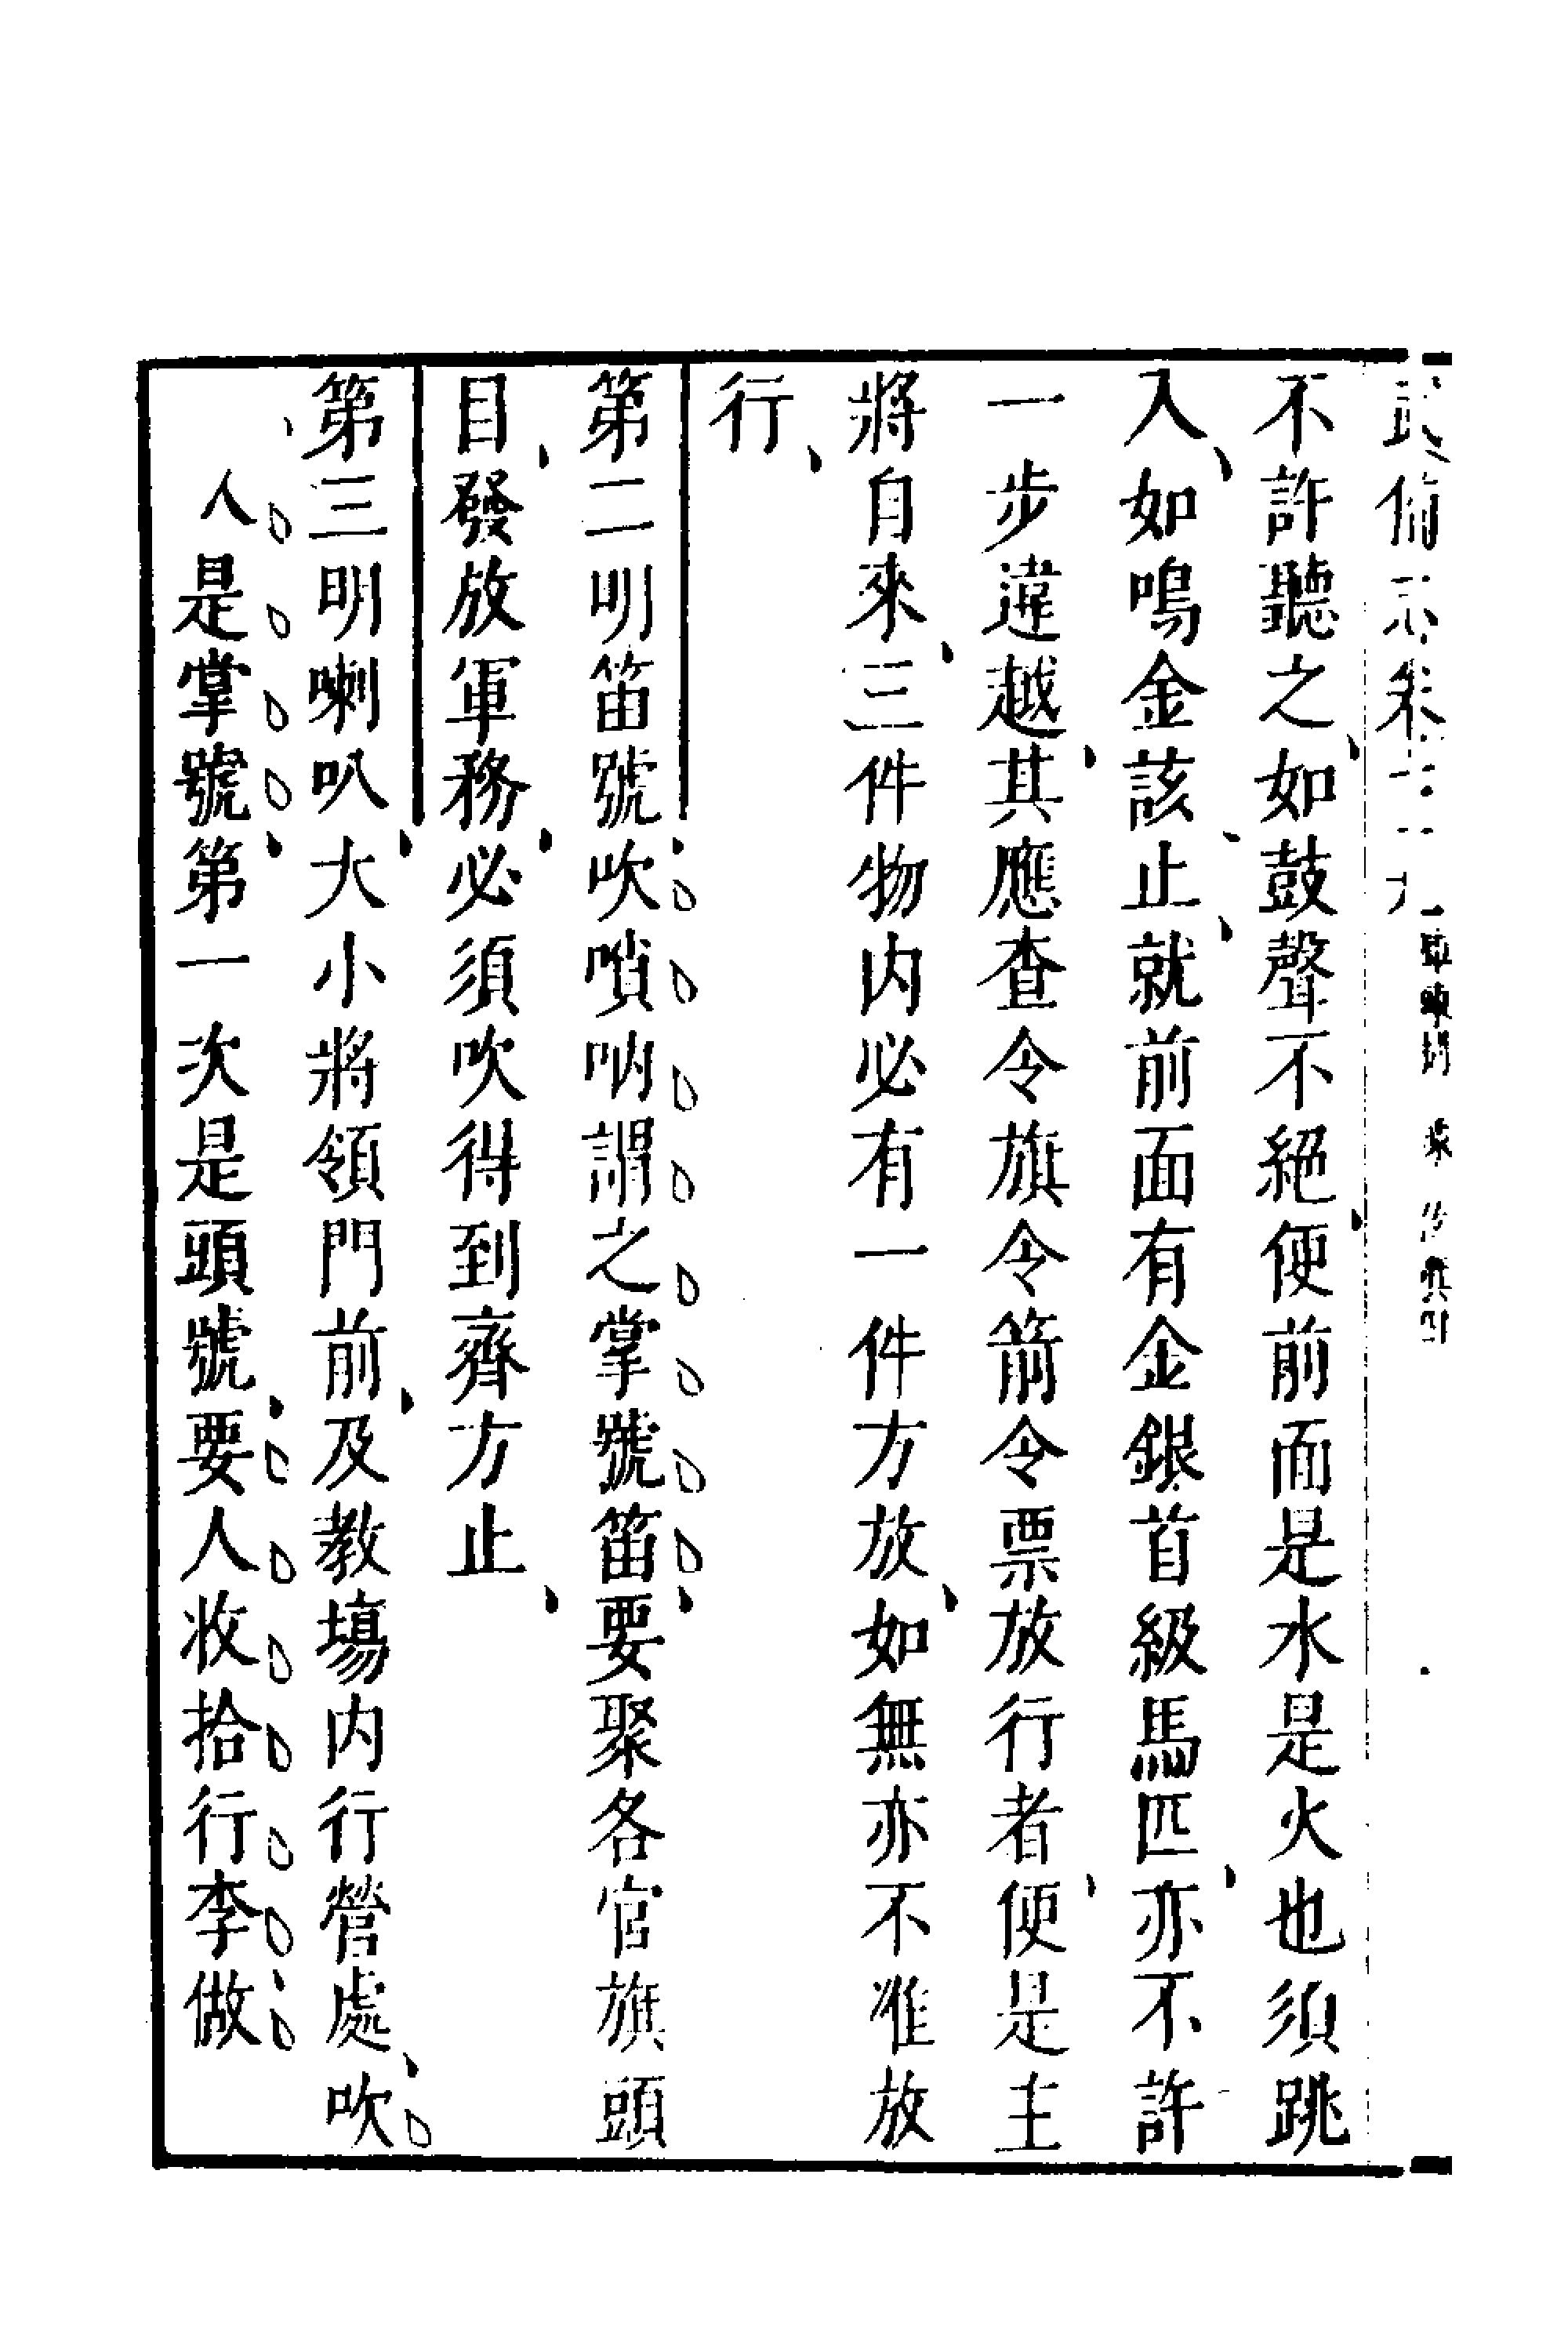 不許聽之如鼓聲不絕便前面是水是火也須跳
入如鳴金該止就前面有金銀首級馬匹亦不許
一步違越其應查令旗令箭令票放行者便是主
將自來三件物内必有一件方放如無亦不准放
行
第二明笛號吹嗩吶謂之掌號笛要聚各官旗頭
目發放軍務必須吹得到齊方止
第三明喇叭大小將領門前及教塲内行營處吹
人是掌號第一次是頭號要人收拾行李做